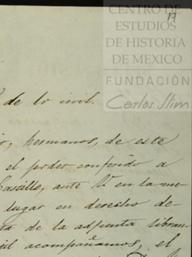 CENTRO DE
ESTUDIOS
DE HISTORIA
DE MEXICO
FUNDACIÓN
Carlos Slim
de lo civil.
hermanos, de este
el poder conferido a
ante V. en la
lugar en derecho
de la adjunta
acompañamos, el